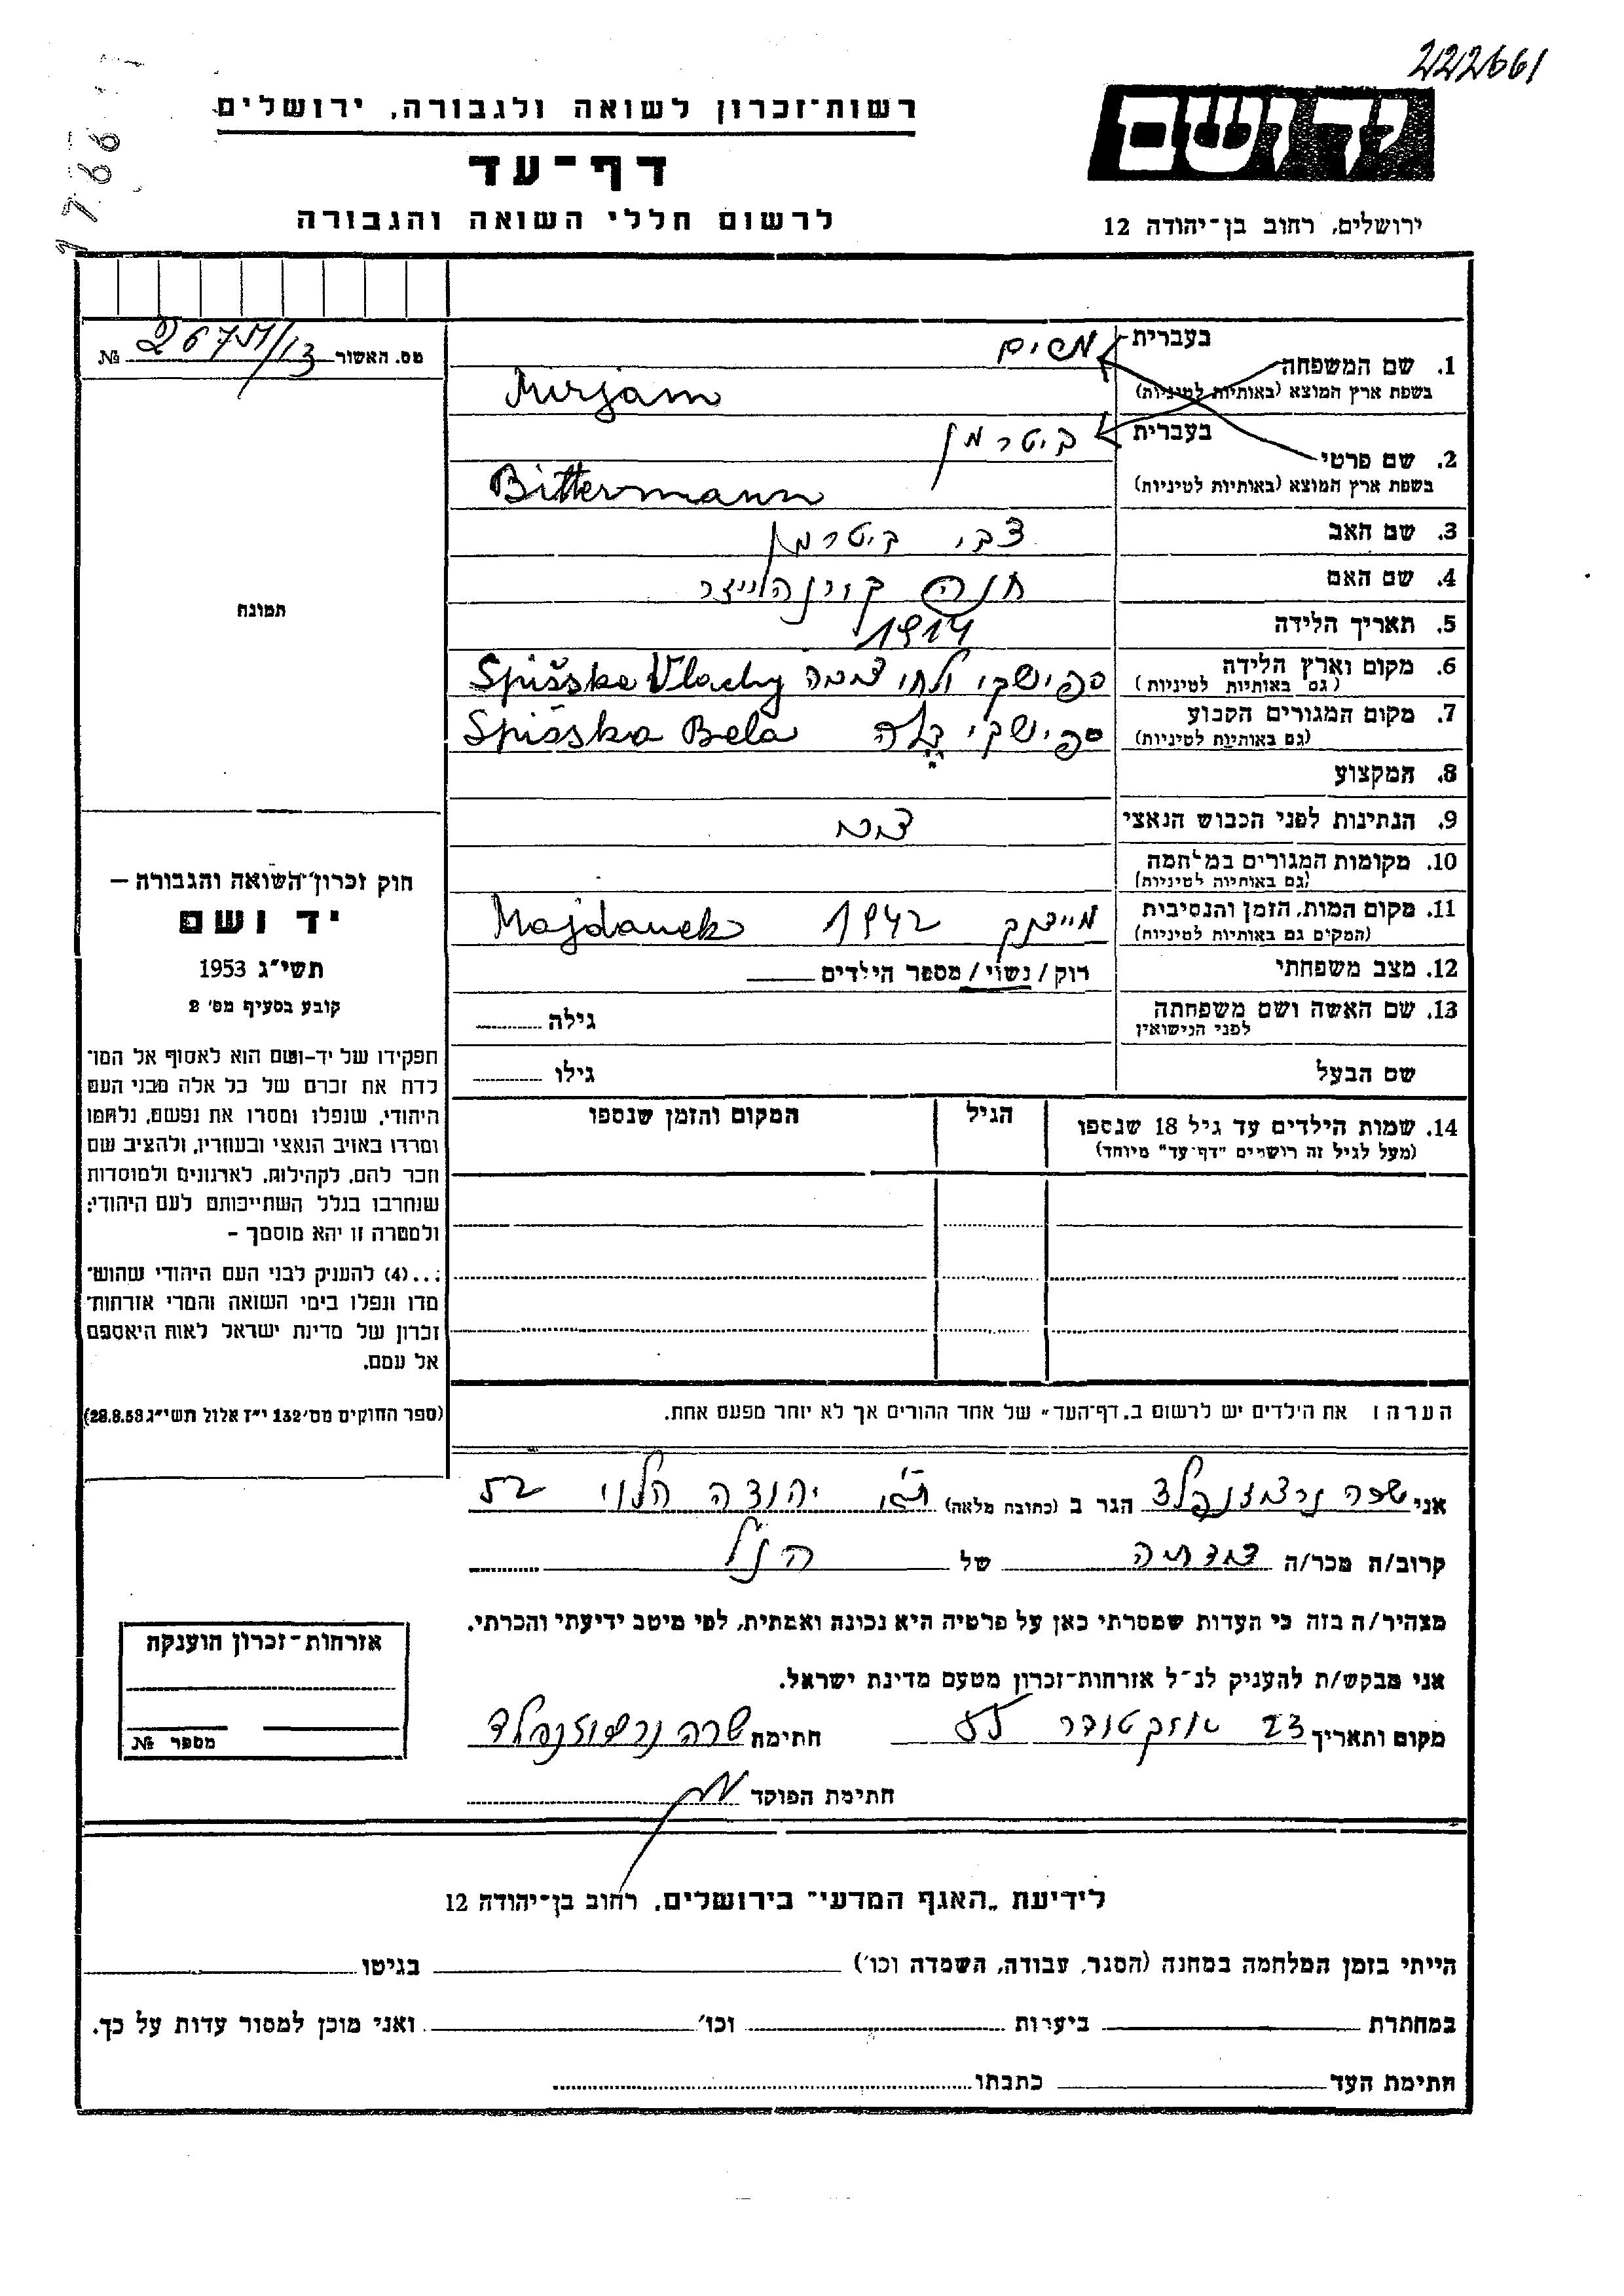 222661
רשות־זכרון לשואה ולגבורה, ירושלים
יד ושם
דף־עד
לרשום חללי השואה והגבורה
ירושלים, רחוב בן־יהודה 12
מס. האשור №
1. שם המשפחה
בעברית מרים
בשפת ארץ המוצא (באותיות לטיניות) Mirjam
2. שם פרטי
בעברית ביטרמן
בשפת ארץ המוצא (באותיות לטיניות) Bittermann
3. שם האב צבי ביטרמן
4. שם האם חנה
5. תאריך הלידה 1914
6. מקום וארץ הלידה ספישקי ולחי Spišske Vlachy
(גם באותיות לטיניות)
7. מקום המגורים הקבוע ספישקי בלה Spišska Bela
(גם באותיות לטיניות)
8. המקצוע
9. הנתינות לפני הכבוש הנאצי
10. מקומות המגורים במלחמה
(גם באותיות לטיניות)
11. מקום המות, הזמן והנסיבות 1942 Majdanek
(המקום גם באותיות לטיניות)
12. מצב משפחתי רוק / נשוי / מספר הילדים
13. שם האשה ושם משפחתה גילה
לפני הנישואין
שם הבעל גילו
14. שמות הילדים עד גיל 18 שנספו הגיל המקום והזמן שנספו
(מעל לגיל זה רושמים "דף־עד" מיוחד)
תמונה
חוק זכרון־השואה והגבורה —
יד ושם
תשי״ג 1953
קובע בסעיף מס׳ 2
תפקידו של יד-ושם הוא לאסוף אל המו־
לדת את זכרם של כל אלה מבני העם
היהודי, שנפלו ומסרו את נפשם, נלחמו
ומרדו באויב הנאצי ובעוזריו, ולהציב שם
וזכר להם, לקהילות, לארגונים ולמוסדות
שנחרבו בגלל השתייכותם לעם היהודי;
ולמטרה זו יהא מוסמך –
...(4) להעניק לבני העם היהודי שהוש־
מדו ונפלו בימי השואה והמרי אזרחות־
זכרון של מדינת ישראל לאות היאספם
אל עמם.
(ספר החוקים מס׳ 132 י״ז אלול תשי״ג 28.8.53)
הערה: את הילדים יש לרשום ב„דף־העד״ של אחד ההורים אך לא יותר מפעם אחת.
אני שרה הגר ב (כתובת מלאה) ת״א יהודה הלוי 52
קרוב/ה מכר/ה של הנ״ל
מצהיר/ה בזה כי העדות שמסרתי כאן על פרטיה היא נכונה ואמתית, לפי מיטב ידיעתי והכרתי.
אני מבקש/ת להעניק לנ״ל אזרחות־זכרון מטעם מדינת ישראל.
מקום ותאריך 23 אוקטובר 55 חתימת שרה
חתימת הפוקד
אזרחות־זכרון הוענקה
מספר №
לידיעת „האגף המדעי״ בירושלים, רחוב בן־יהודה 12
הייתי בזמן המלחמה במחנה (הסגר, עבודה, השמדה וכו׳) בגיטו
במחתרת ביערות וכו׳ ואני מוכן למסור עדות על כך.
חתימת העד כתבתו